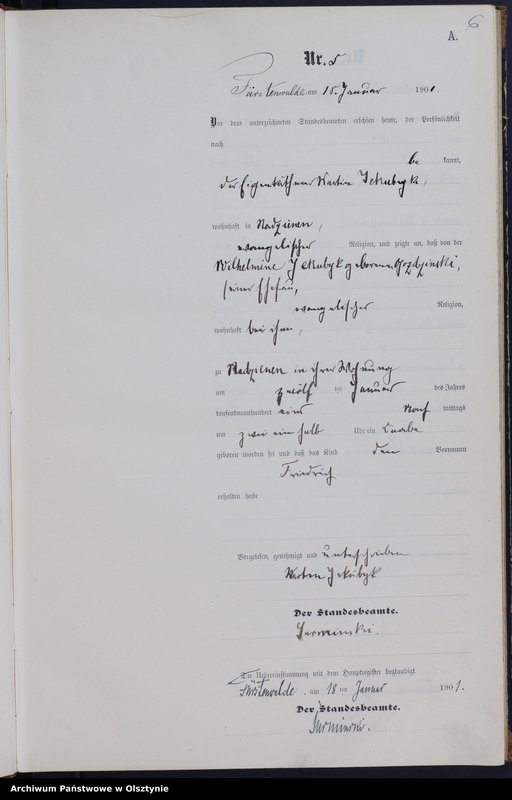 6
A.
Nr. 5
Fürstenwalde am 18. Januar 1901.
Vor dem unterzeichneten Standesbeamten erschien heute, der Persönlichkeit
nach
be kannt,
der Eigenkäthner Martin Jekubzyk,
wohnhaft in Radzienen,
evangelischer Religion, und zeigte an, daß von der
Wilhelmine Jekubzyk geborenen Gozdzinski,
seiner Ehefrau,
evangelischer Religion,
wohnhaft bei ihm,
zu Radzienen in ihrer Wohnung
am zwölf ten Januar des Jahres
tausendneunhundert eins Nach mittags
um zwei ein halb Uhr ein Knabe
geboren worden sei und daß das Kind den Vornamen
Friedrich
erhalten habe
Vorgelesen, genehmigt und unterschrieben
Martin Jekubzyk
Der Standesbeamte.
Die Uebereinstimmung mit dem Hauptregister beglaubigt
Fürstenwalde, am 18 ten Januar 1901.
Der Standesbeamte.
Archiwum Państwowe w Olsztynie